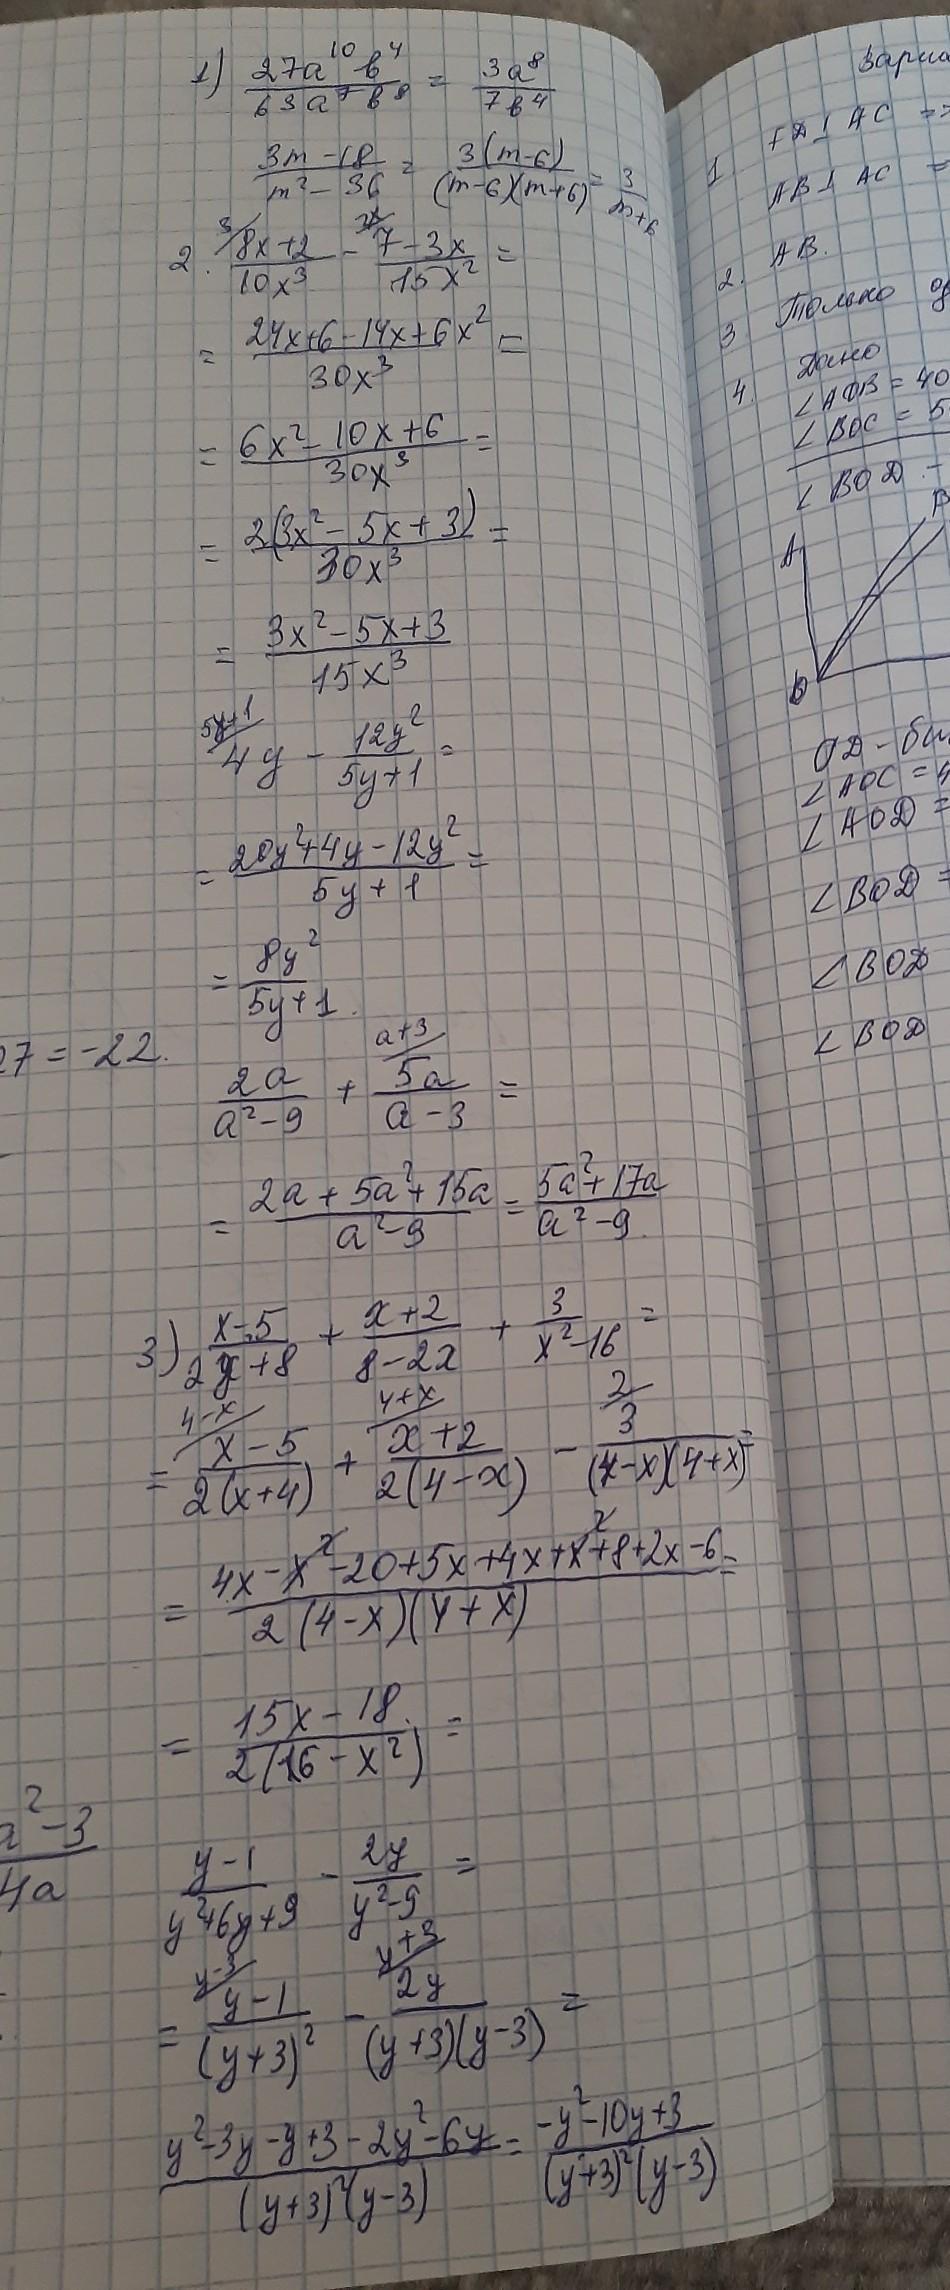 1) 27a¹⁰b⁴/63a⁷b⁸ = 3a⁸/7b⁴
(3m-18)/(m²-36) = 3(m-6)/(m-6)(m+6) = 3/(m+6)
2. ³/(8x+2)/10x³ - ²ˣ/(7-3x)/15x² =
= (24x+6-14x+6x²)/30x³ =
= (6x²-10x+6)/30x³ =
= 2(3x²-5x+3)/30x³ =
= (3x²-5x+3)/15x³
5y+1/ 4y - 12y²/(5y+1) =
= (20y²+4y-12y²)/(5y+1) =
= 8y²/(5y+1).
a+3/
2a/(a²-9) + 5a/(a-3) =
= (2a+5a²+15a)/(a²-9) = (5a²+17a)/(a²-9).
3) (x-5)/(2x+8) + (x+2)/(8-2x) + 3/(x²-16) =
4-x/ 4+x/ 2/
= (x-5)/2(x+4) + (x+2)/2(4-x) - 3/(4-x)(4+x) =
= (4x-x²-20+5x+4x+x²+8+2x-6)/2(4-x)(4+x) =
= (15x-18)/2(16-x²) =
(y-1)/(y²+6y+9) - 2y/(y²-9) =
y-3/ y+3/
= (y-1)/(y+3)² - 2y/(y+3)(y-3) =
(y²-3y-y+3-2y²-6y)/(y+3)²(y-3) = (-y²-10y+3)/(y+3)²(y-3)
27 = -22.
a²-3
4a
1. FD⊥AC =>
AB⊥AC =
2. AB.
3 Только
4. Дано
∠AOB = 40
∠BOC = 5
∠BOD -
A
B
O
OD -
∠AOC = 4
∠AOD =
∠BOD =
∠BOD
∠BOD